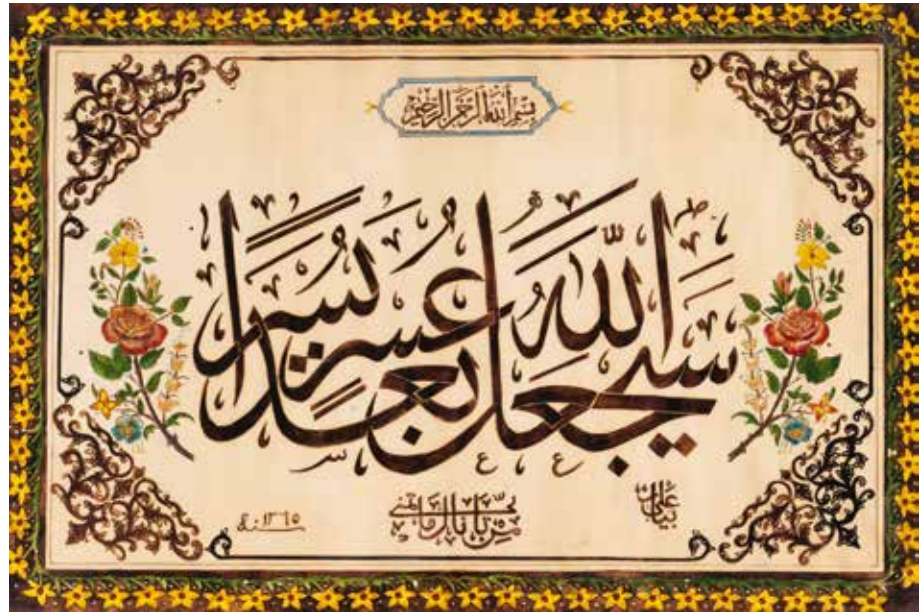 بِسْمِ اللهِ الرَّحْمٰنِ الرَّحِيْمِ
سَيَجْعَلُ اللّٰهُ بَعْدَ عُسْرٍ يُسْرًا
علی
سنة ١٣٦٥